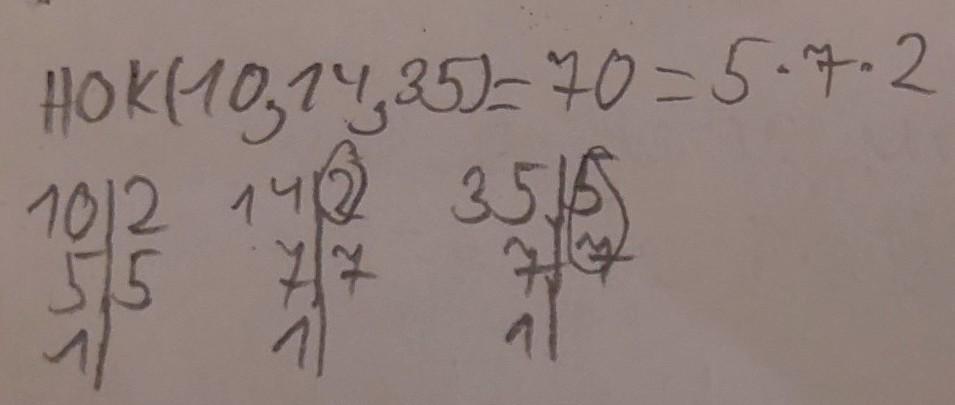 НОК(10,14,35)=70=5·7·2
10|2 14|2 35|5
5|5 7|7 7|7
1| 1| 1|